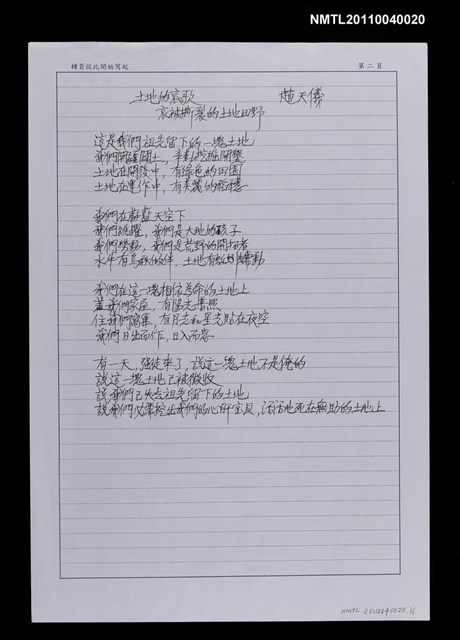 NMTL20110040020
轉頁從此開始寫起
第二頁
土地的哀歌 趙天儀
哀被撕裂的土地田野
這是我們祖先留下的一塊土地
我們開疆闢土,辛勤挖掘開墾
土地在開發中,有綠色的田園
土地在運作中,有美麗的
我們在蔚藍天空下
我們跳躍,我們是大地的孩子
我們勞動,我們是荒野的開拓者
水牛有烏秋做伴,土地有蚯蚓蠕動
我們在這一塊相依為命的土地上
蓋我們家屋,有陽光普照
住我們,有月光和星光貼在夜空
我們日出而作,日入而息
有一天,強徒來了,說這一塊土地不是俺的
說這一塊土地已被徵收
說我們已失去祖先留下的土地
說我們必需挖出我們的心肝寶貝,活活地死在無助的土地上
NMTL 20110040020 1/5